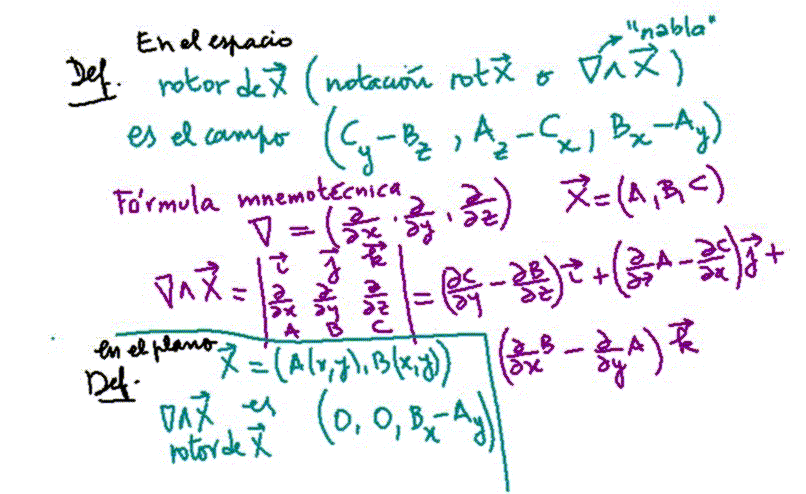 En el espacio
"nabla"
Def. rotor de X⃗ (notación rot X⃗ o ∇∧X⃗)
es el campo (C_y − B_z , A_z − C_x , B_x − A_y)
Fórmula mnemotécnica
∇ = (∂/∂x , ∂/∂y , ∂/∂z) X⃗ = (A, B, C)
∇∧X⃗ = | i⃗ j⃗ k⃗ |
| ∂/∂x ∂/∂y ∂/∂z |
| A B C | = (∂C/∂y − ∂B/∂z) i⃗ + (∂/∂z A − ∂C/∂x) j⃗ +
(∂/∂x B − ∂/∂y A) k⃗
en el plano
Def. X⃗ = (A(x,y), B(x,y))
∇∧X⃗ es (0, 0, B_x − A_y)
rotor de X⃗